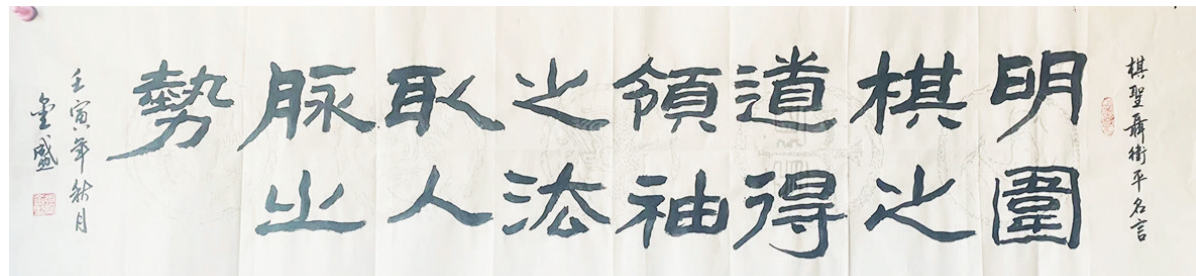 棋聖聶衛平名言
明圍
棋之
道得
領袖
之法
取人
脉之
勢
壬寅年秋月
金盛